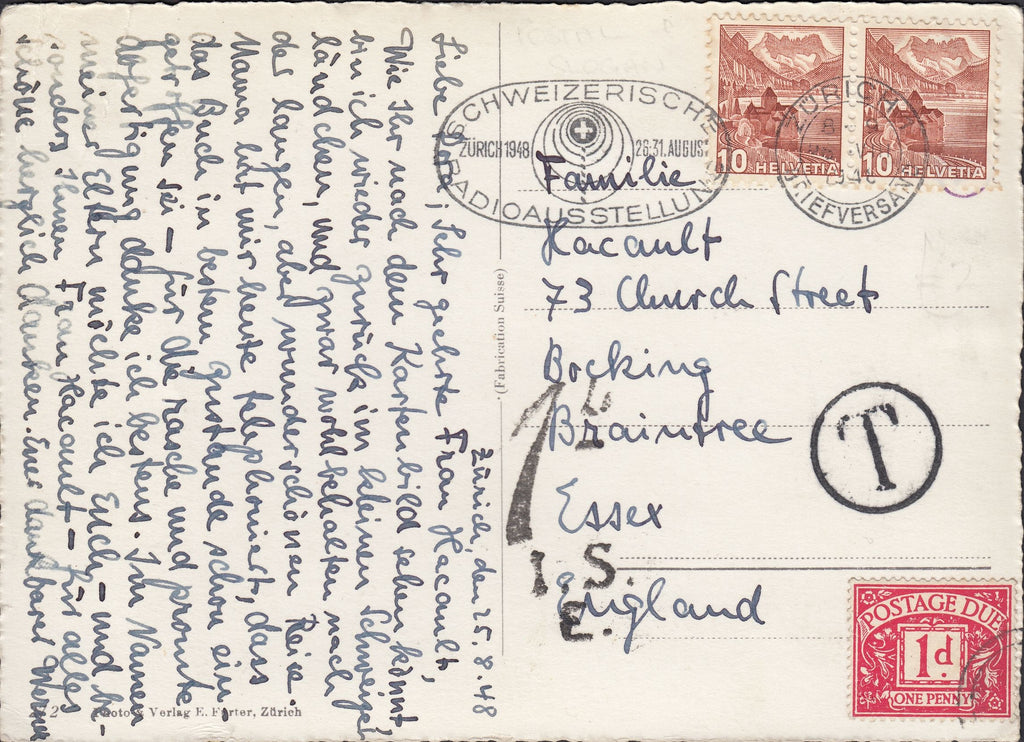 Zürich, den 25. 8. 48
Liebe, Sehr geehrte Frau Hacault,
Wie Ihr nach dem Kartenbild sehen könnt,
bin ich wieder zurück im kleinen Schweizer-
ländchen, und zwar wohlbehalten nach
der langen, aber wunderschönen Reise.
Mama hat mir heute telephoniert, dass
das Buch in bestem Zustande schon ein-
getroffen sei – für die rasche und prompte
Abfertigung danke ich bestens. Im Namen
meiner Eltern möchte ich Euch – und be-
sonders Ihnen Frau Hacault – für alles
herzlich danken. Euer dankbarer Werner
2 Photo & Verlag E. Ferter, Zürich
(Fabrication Suisse)
SCHWEIZERISCHE
ZÜRICH 1948 26.31.AUGUST
RADIOAUSSTELLUNG
10 HELVETIA
10 HELVETIA
ZÜRICH
BRIEFVERSAND
Familie
Hacault
73 Church Street
Bocking
Braintree
Essex
England
T
1
I.S.
E.
POSTAGE DUE
1d
ONE PENNY